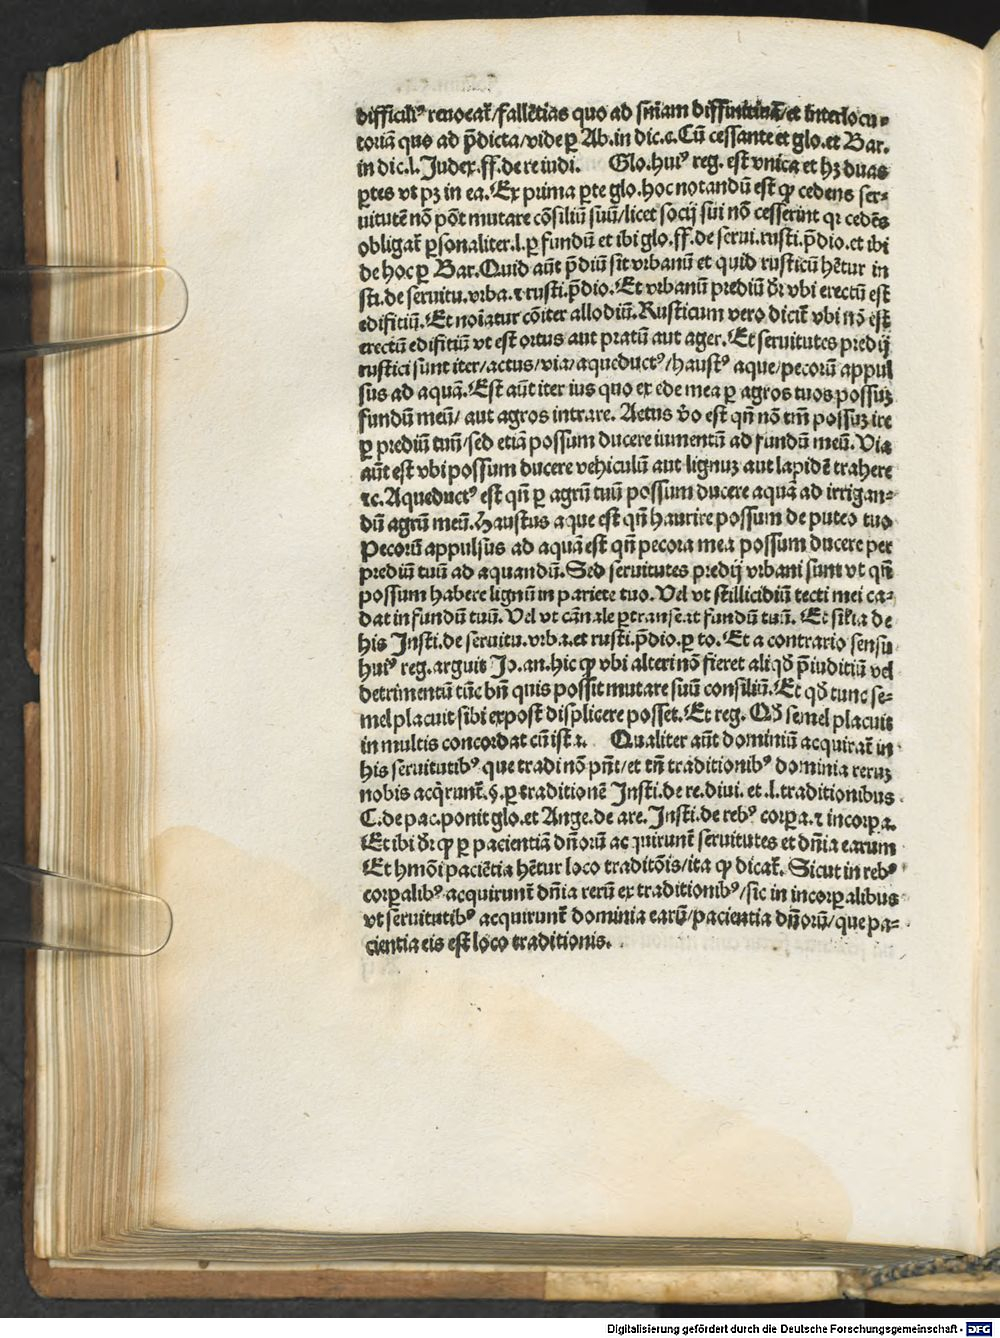 difficilꝰ reuocat̄/fallētias quo ad sn̄iam diffinitiuā/et interlocu⸗
toriā quo ad p̄dicta/vide ꝑ Ab.in dic.c.Cū cessante et glo.et Bar.
in dic.l.Judex.ff.de re iudi. Glo.huiꝰ reg. est vnica et hꝫ duas
ꝑtes vt pꝫ in ea.Ex prima ꝑte glo.hoc notandū est ꝙ cedens ser⸗
uitutē nō pōt mutare cōsiliū suū/licet socij sui nō cesserint qꝛ cedēs
obligat̄ ꝑsonaliter.l.ꝑ fundū et ibi glo.ff.de serui.rusti.p̄dio.et ibi
de hoc ꝑ Bar.Quid aūt p̄diū sit vrbanū et quid rusticū hētur in
sti.de seruitu.vrba.⁊ rusti.p̄dio.Et vrbanū prediū dr̄ vbi erectū est
edifitiū.Et noiatur cōiter allodiū.Rusticum vero dicit̄ vbi nō est
erectū edifitiū vt est ortus aut pratū aut ager.Et seruitutes predij
rustici sunt iter/actus/via/aqueductꝰ/haustꝰ aque/pecorū appul
sus ad aquā.Est aūt iter ius quo ex ede mea ꝑ agros tuos possuꝫ
fundū meū/ aut agros intrare. Actus v̄o est qn̄ nō tm̄ possuꝫ ire
ꝑ prediū tuū/sed etiā possum ducere iumentū ad fundū meū.Via
aūt est vbi possum ducere vehiculū aut lignuꝫ aut lapidē trahere
⁊c.Aqueductꝰ est qn̄ ꝑ agrū tuū possum ducere aquā ad irrigan⸗
dū agrū meū.Haustus aque est qn̄ haurire possum de puteo tuo
Pecorū appulsus ad aquā est qn̄ pecora mea possum ducere per
prediū tuū ad aquandū.Sed seruitutes predij vrbani sunt vt qn̄
possum habere lignū in pariete tuo.Vel vt stillicidiū tecti mei ca⸗
dat in fundū tuū.Vel vt cānale ꝑtranseat fundū tuū. Et silia de
his Insti.de seruitu.vrb.a.et rusti.p̄dio.ꝑ to.Et a contrario sensu
huiꝰ reg.arguit Jo.an.hic ꝙ vbi alteri nō fieret aliqd̄ p̄iuditiū vel
detrimentū tūc bn̄ quis possit mutare suū consiliū.Et qd̄ tunc se⸗
mel placuit sibi expost displicere posset.Et reg. Qd̄ semel placuit
in multis concordat cū ista. Qualiter aūt dominiū acquirat̄ in
his seruitutibꝰ que tradi nō pn̄t/et tn̄ traditionibꝰ dominia reruꝫ
nobis acq̄runt̄.§.ꝑ traditionē Insti.de re.diui. et.l.traditionibus
C.de pac.ponit glo.et Ange.de are.Insti.de rebꝰ corꝑa.⁊ incorꝑa.
Et ibi dr̄ ꝙ ꝑ pacientiā dn̄orū acquirunt̄ seruitutes et dn̄ia earum
Et hmōi paciētia hētur loco traditōis/ita ꝙ dicat̄. Sicut in rebꝰ
corꝑalibꝰ acquirunt̄ dn̄ia rerū ex traditionibꝰ/sic in incorꝑalibus
vt seruitutibꝰ acquirunt̄ dominia earū/pacientia dn̄orū/que pa⸗
cientia eis est loco traditionis.
Digitalisierung gefördert durch die Deutsche Forschungsgemeinschaft - DFG